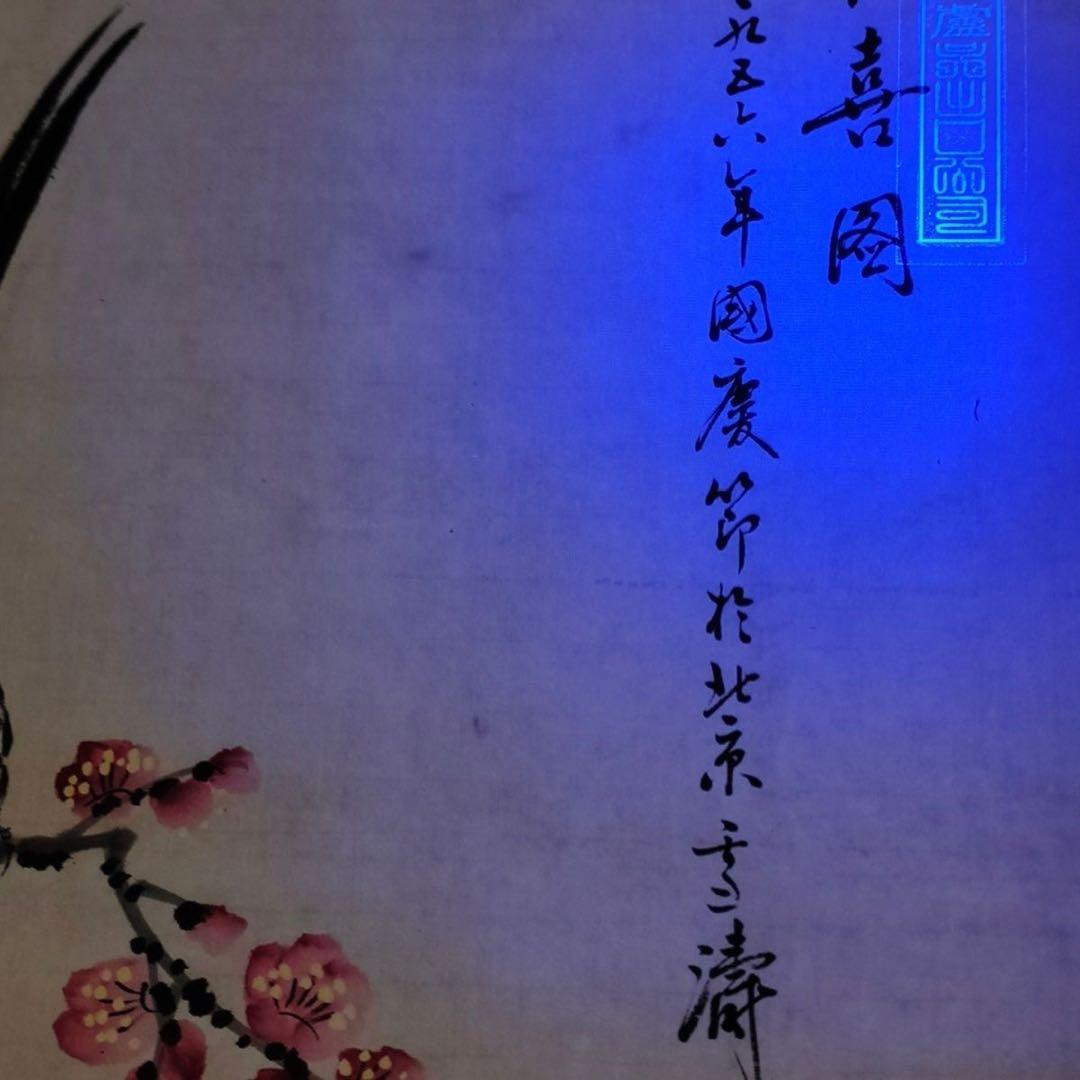 喜图
九五六年國慶節於北京雪濤